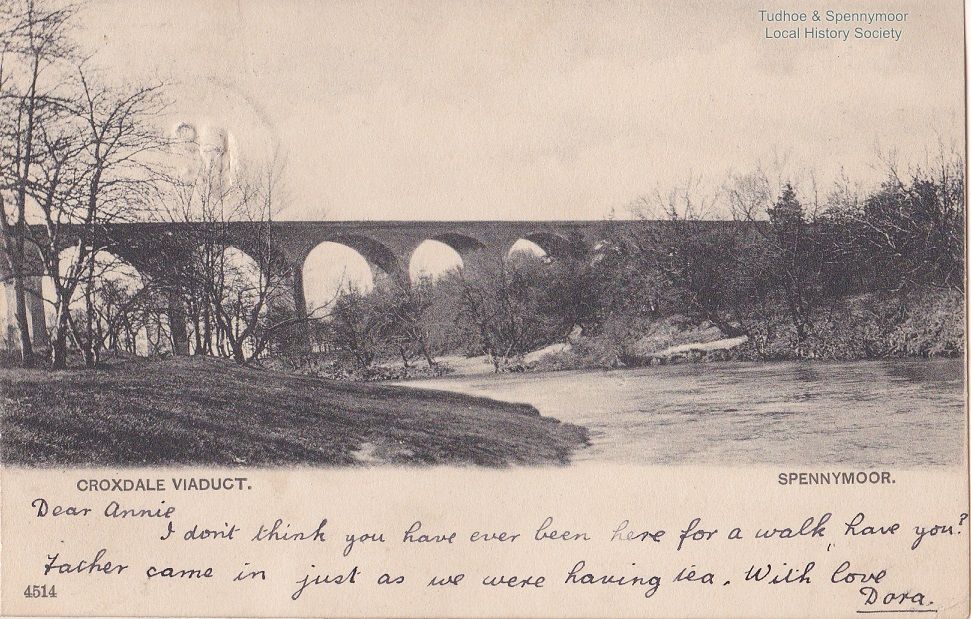 Tudhoe & Spennymoor
Local History Society
CROXDALE VIADUCT. SPENNYMOOR.
Dear Annie
I don't think you have ever been here for a walk, have you?
Father came in just as we were having tea. With love
4514 Dora.